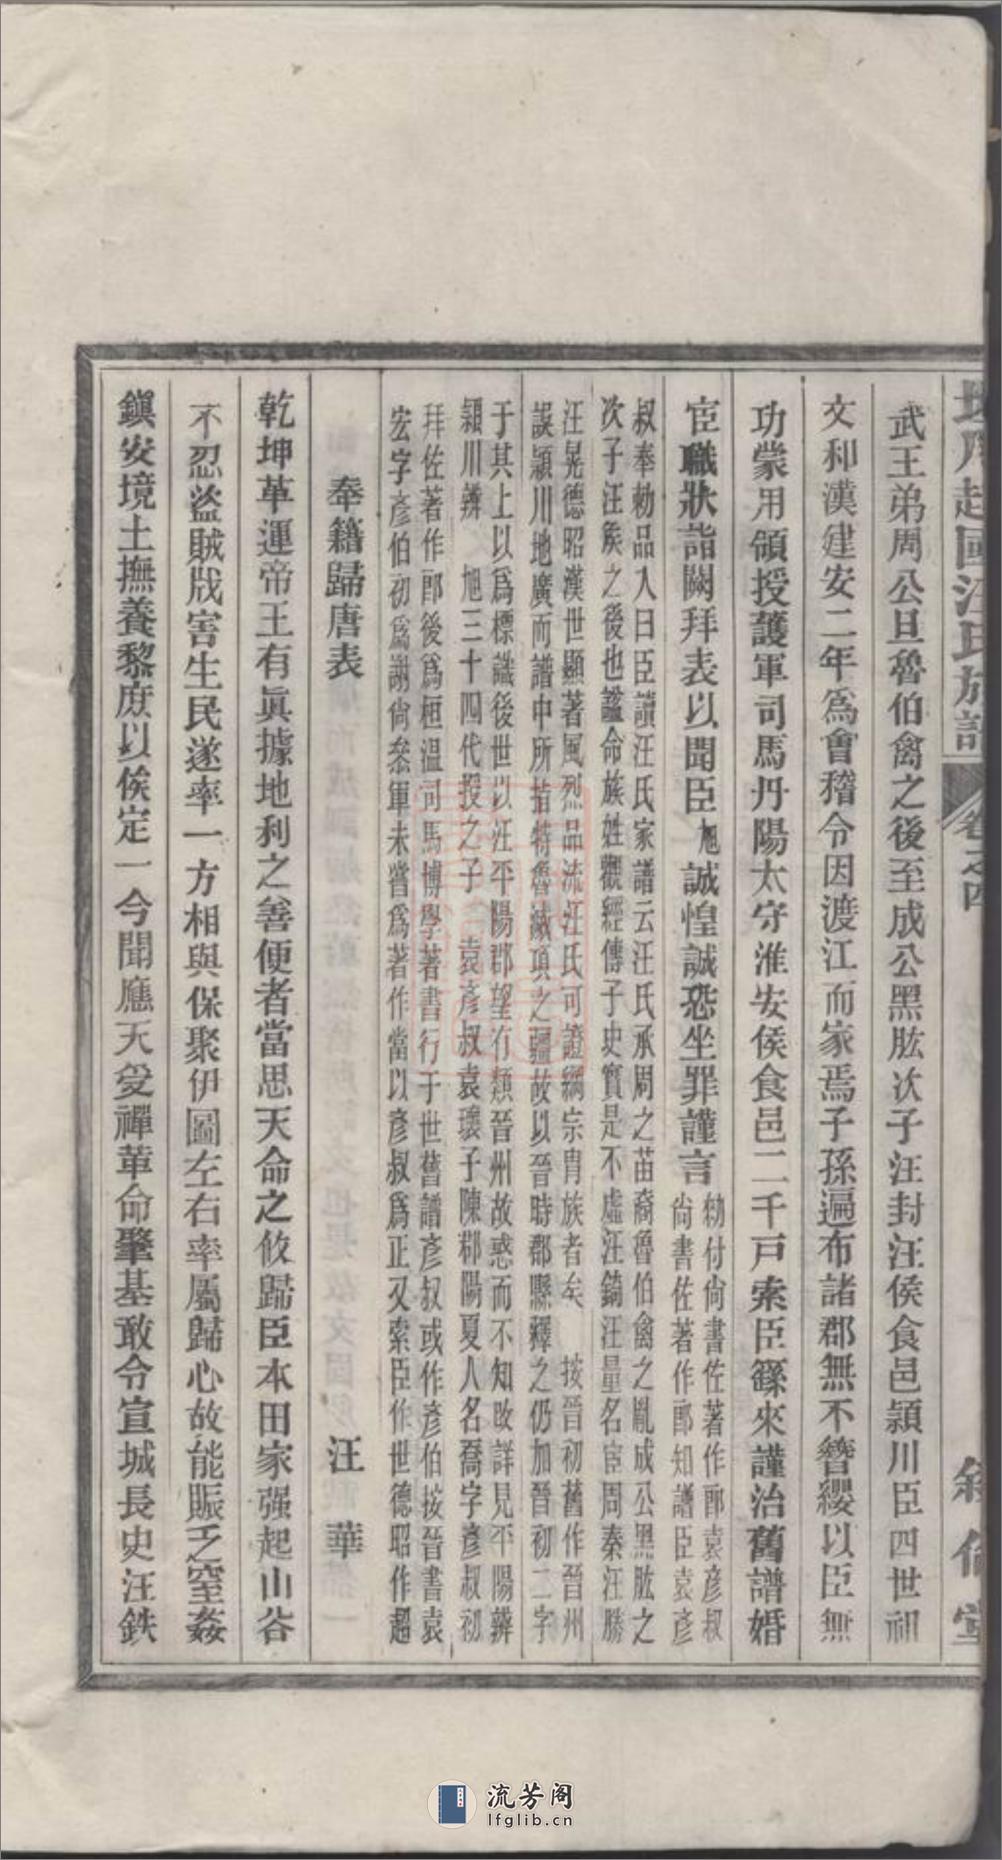 越國汪氏族譜 卷之四 敘倫堂
武王弟周公旦魯伯禽之後至成公黑肱次子汪封汪侯食邑潁川臣四世祖
文和漢建安二年為會稽令因渡江而家焉子孫遍布諸郡無不簪纓以臣無
功蒙用領授護軍司馬丹陽太守淮安侯食邑二千戶索臣繇來謹治舊譜婚
宦職狀詣闕拜表以聞臣旭誠惶誠恐坐罪謹言
勑付尚書佐著作郎袁彥叔
尚書佐著作郎知譜臣袁彥
叔奉勑品入曰臣讀汪氏家譜云汪氏承周之苗裔魯伯禽之胤成公黑肱之
次子汪矦之後也謚命族姓觀經傳子史實是不虛汪錡汪量名宦周秦汪勝
汪晃德昭漢世顯著風烈品流汪氏可證綱宗胄族者矣 按晉初舊作晉州
誤潁川地廣而譜中所指特魯滅項之疆故以晉時郡縣釋之仍加晉初二字
于其上以為標識後世以汪平陽郡望有類晉州故惑而不知改詳見平陽辨
潁川辨 旭三十四代授之子 袁彥叔袁瓌子陳郡陽夏人名喬字彥叔初
拜佐著作郎後為桓溫司馬博學著書行于世舊譜彥叔或作彥伯按晉書袁
宏字彥伯初為謝尚叅軍未嘗為著作當以彥叔為正又索臣作世德昭作超
奉籍歸唐表 汪華
乾坤革運帝王有眞據地利之善便者當思天命之攸歸臣本田家强起山谷
不忍盜賊戕害生民遂率一方相與保聚伊圖左右率屬歸心故能賑乏窒姦
鎭安境土撫養黎庶以俟定一今聞應天受禪革命肇基敢令宣城長史汪鉄
流芳阁
lfglib.cn